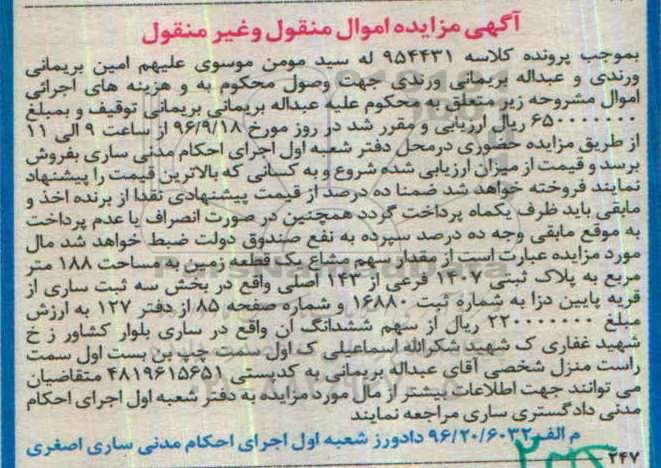 آگهی مزایده اموال منقول وغیر منقول
بموجب پرونده کلاسه ۹۵۴۴۳۱ له سید مومن موسوی علیهم امین بریمانی
ورندی و عبداله بریمانی ورندی جهت وصول محکوم به و هزینه های اجرائی
اموال مشروحه زیر متعلق به محکوم علیه عبداله بریمانی بریمانی توقیف و بمبلغ
۶۵۰۰۰۰۰۰۰۰ ریال ارزیابی و مقرر شد در روز مورخ ۹۶/۹/۱۸ از ساعت ۹ الی ۱۱
از طریق مزایده حضوری درمحل دفتر شعبه اول اجرای احکام مدنی ساری بفروش
برسد و قیمت از میزان ارزیابی شده شروع و به کسانی که بالاترین قیمت را پیشنهاد
نمایند فروخته خواهد شد ضمنا ده درصد از قیمت پیشنهادی نقدا از برنده اخذ و
مابقی باید ظرف یکماه پرداخت گردد همچنین در صورت انصراف یا عدم پرداخت
به موقع مابقی وجه ده درصد سپرده به نفع صندوق دولت ضبط خواهد شد مال
مورد مزایده عبارت است از مقدار سهم مشاع یک قطعه زمین به مساحت ۱۸۸ متر
مربع به پلاک ثبتی ۱۴۰۷ فرعی از ۱۴۳ اصلی واقع در بخش سه ثبت ساری از
قریه پایین دزا به شماره ثبت ۱۶۸۸۰ و شماره صفحه ۸۵ از دفتر ۱۲۷ به ارزش
مبلغ ۲۲۰۰۰۰۰۰۰۰ ریال از سهم ششدانگ آن واقع در ساری بلوار کشاور ز خ
شهید غفاری ک شهید شکرالله اسماعیلی ک اول سمت چپ بن بست اول سمت
راست منزل شخصی آقای عبداله بریمانی به کدپستی ۴۸۱۹۶۱۵۶۵۱ متقاضیان
می توانند جهت اطلاعات بیشتر از مال مورد مزایده به دفتر شعبه اول اجرای احکام
مدنی دادگستری ساری مراجعه نمایند
م الف ۹۶/۲۰/۶۰۳۲ دادورز شعبه اول اجرای احکام مدنی ساری اصغری
۲۴۷